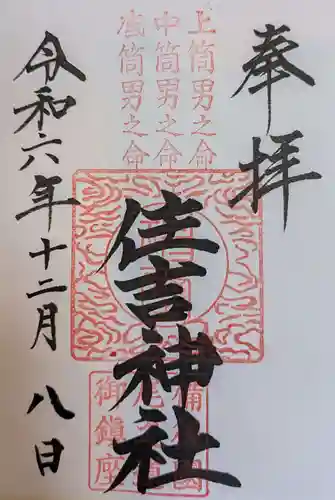 奉拝
上筒男之命
中筒男之命
底筒男之命
住吉神社
御鎮座
令和六年十二月八日